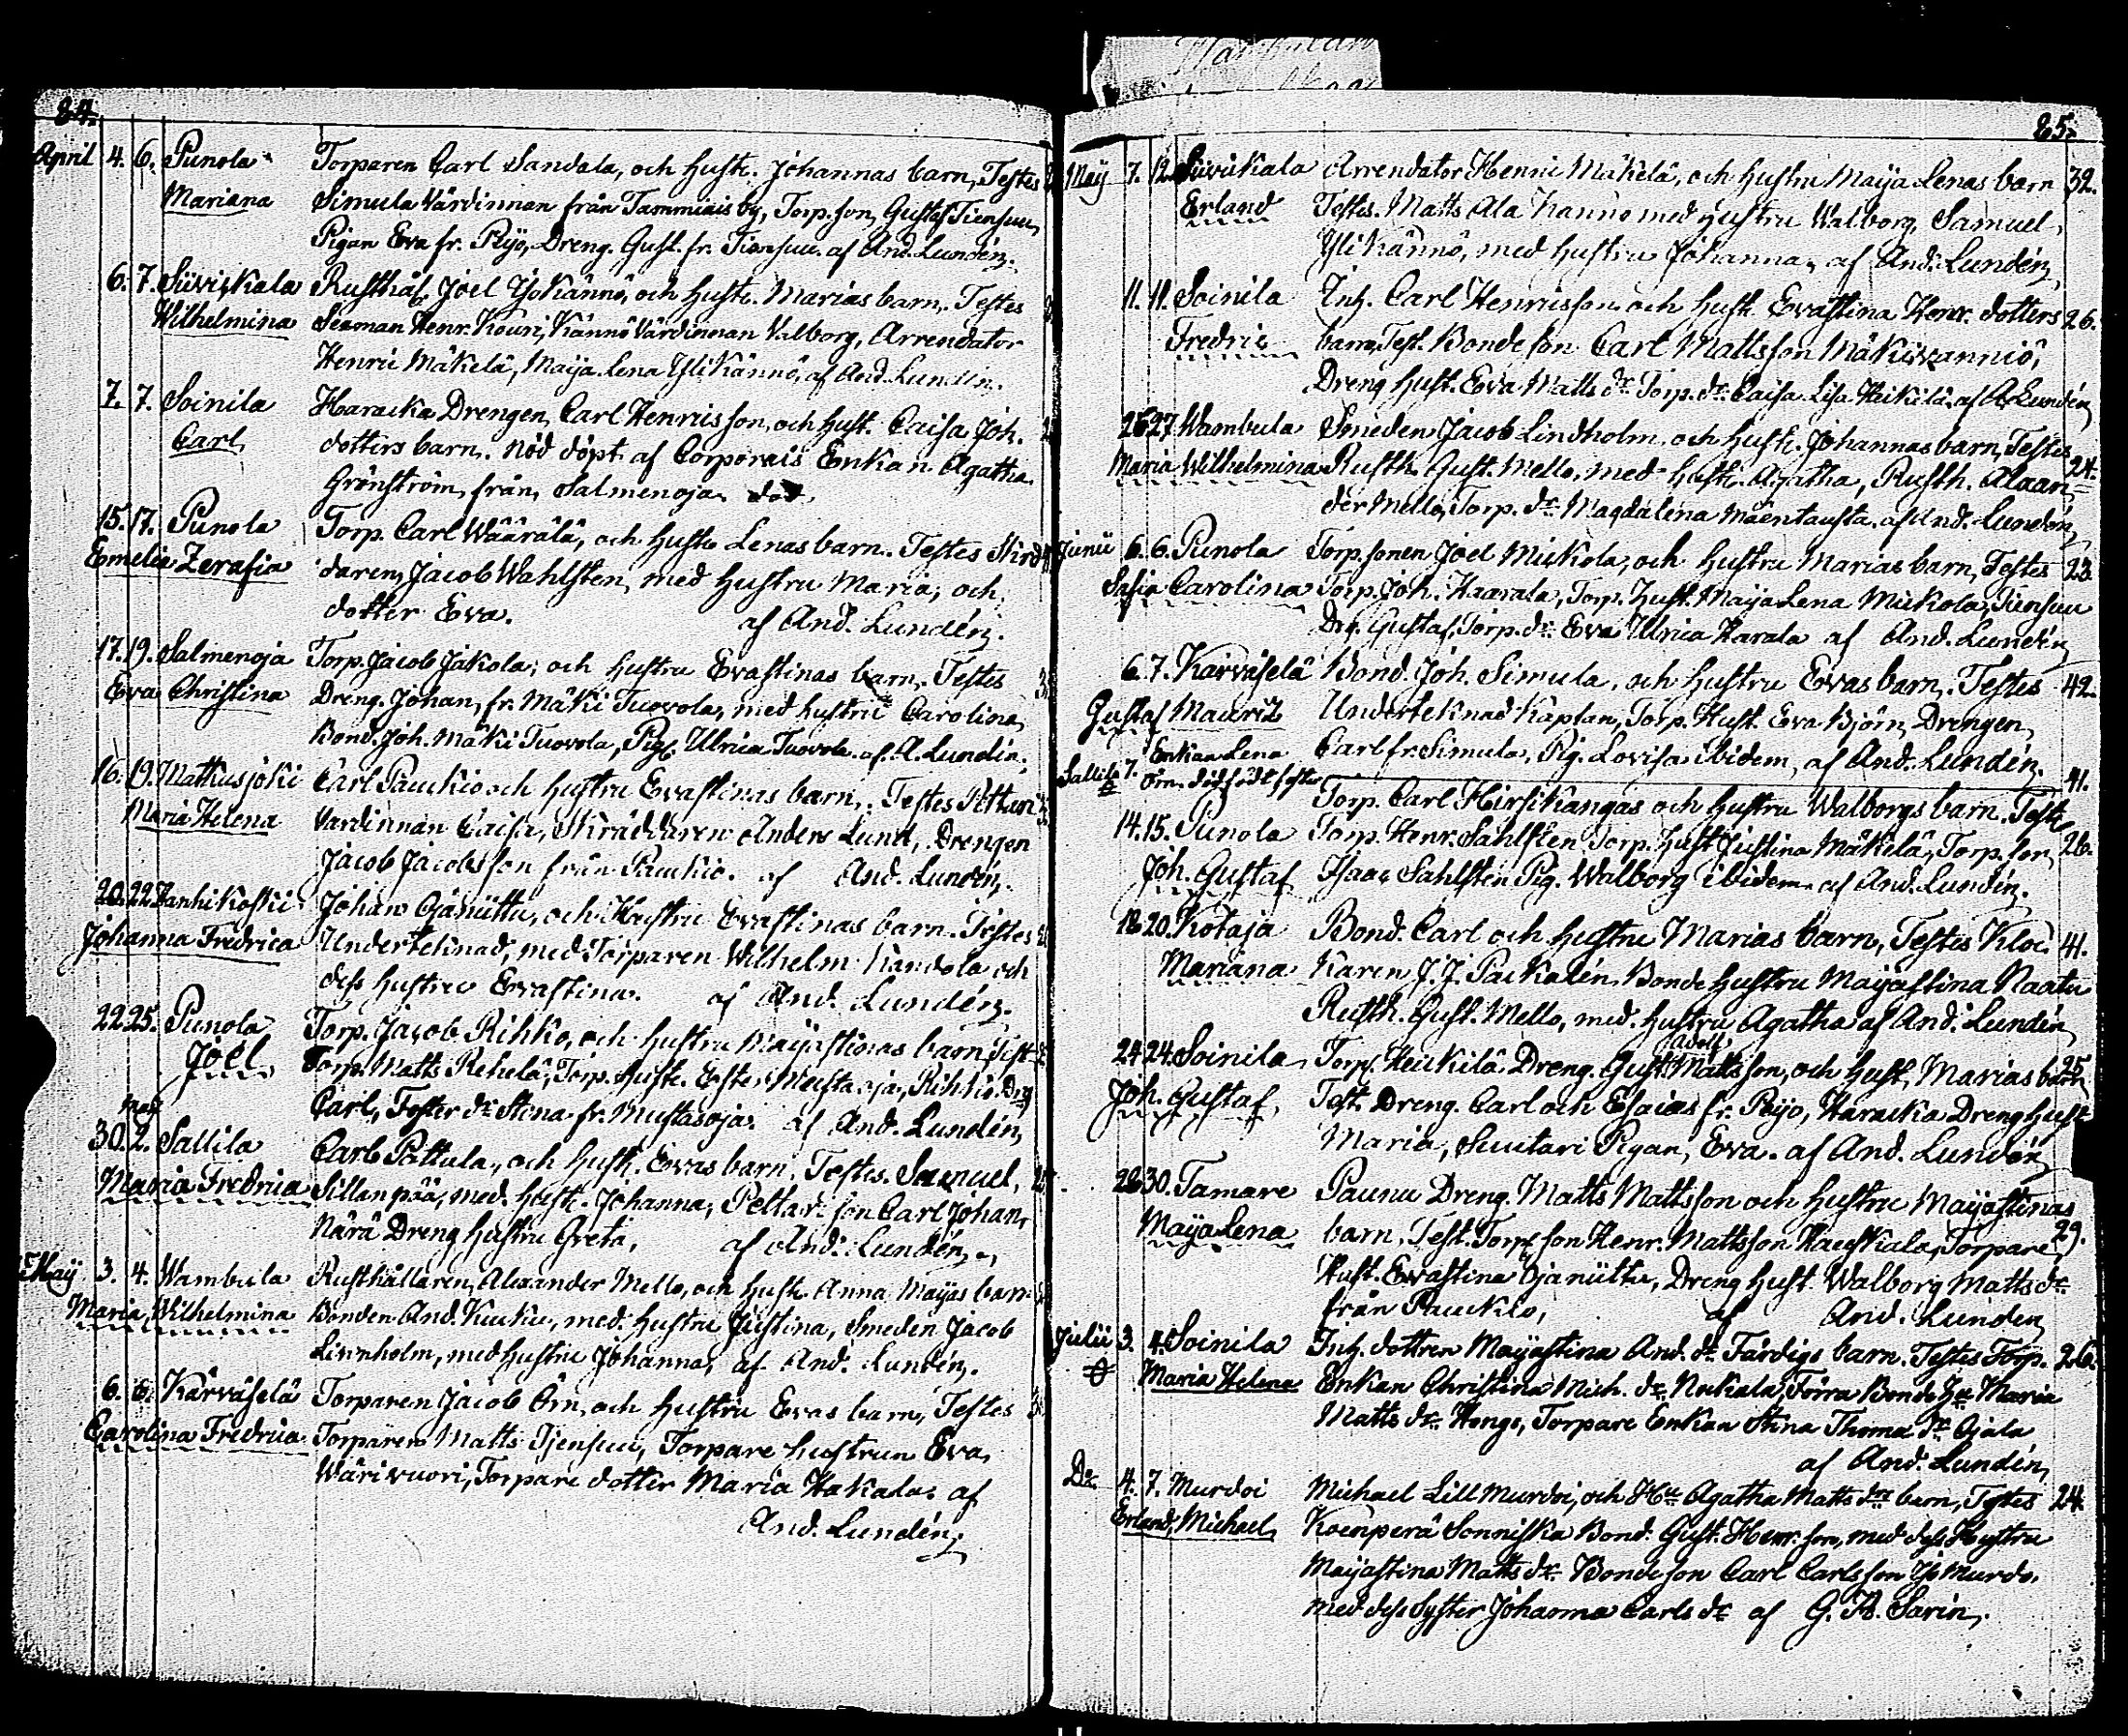 84.
April 4. 6. Punola Torparen Carl Sandala, och hustr. Johannas barn, Testes
Mariana Simula Värdinnan från Tammiais by, Torp. son, Gustaf Tiensuu,
Pigan Eva fr. Pijo, Dreng. Gust. fr. Tiensuu. af And. Lundén.
6. 7. Siivikala Rusthål. Joel Iso Kännö, och hustr. Marias barn. Testes
Wilhelmina Sexman Henr. Kouri, Kännö Värdinnan Valborg, Arrendator
Henric Mäkelä, Maija Lena Yli Kännö, af And. Lundén.
7. 7. Soinila Haracka Drengen, Carl Henricsson, och hust. Caisa Joh.
Carl dotters barn. Nöd döpt af Corporais Enkan Agatha
Grönström, från, Salmenoja. död.
15. 17. Punola Torp. Carl Wäärälä, och hustr. Lenas barn. Testes Skräd
Emelia Zerafia daren, Jacob Wahlsten, med hustru Maria, och
dotter Eva. af And. Lundén.
17. 19. Salmenoja Torp. Jacob Jakola, och hustru Evastinas barn. Testes
Eva Christina Dreng. Johan, fr. Mäki Tuovola, med hustru Carolina,
Bond. Joh. Mäki Tuovola, Pig. Ulrica Tuovola af. A. Lundén.
16. 19. Matkusjoki Carl Pauckio och hustru Evastinas barn. Testes
Maria Helena Värdinnan Caisa, Skräddaren Anders Lund, Drengen
Jacob Jacobsson från Pauckio. af And. Lundén.
20. 22. Vanhikoski Johan Ojanüttu, och Hustru Evastinas barn. Testes
Johanna Fredrica Undertecknad, med Torparen Wilhelm Kandola och
dess hustru Evastina. af And. Lundén.
22. 25. Punola Torp. Jacob Rihko, och hustru Maijastinas barn Test.
Joel Torp. Matts Rehelä, Torp. hustr. Ester Mustaoja, Rihko Dreng
Carl, Foster dr Stina fr. Mustasoja. af And. Lundén,
Maij
30. 2. Sallila Carl Pottula, och hustr. Evas barn. Testes. Samuel,
Maria Fredrica Sillanpää, med. hustr. Johanna, Pelta dr son Carl Johan,
Närä Dreng hustru Greta, af And. Lundén.
Maij 3. 4. Wambula Rusthållaren, Alexander Mello, och hustr. Anna Maijas barn
Maria, Wilhelmina Bonden And. Kuuku, med. hustru Justina, Smeden Jacob
Linnholm, med hustru Johanna, af And. Lundén.
6. 6. Kärväselä Torparen Jacob Örn, och hustru Evas barn, Testes
Carolina Fredrica Torparen Matts Tjensuu, Torpare hustrun Eva
Wärivuori, Torpare dotter Maria Hakala. af
And. Lundén,
85.
Maij 7. 12. Siivikala Arrendator Henric Mäkelä, och hustru Maija Lenas barn 32.
Erland Testes. Matts Ala Kännö med hustru Walborg, Samuel,
Yli Kännö, med hustru Johanna, af And. Lundén,
11. 11. Soinila Inh. Carl Henricsson och hust. Evastina Henr. dotters 26.
Fredric barn, Test. Bondeson Carl Mattsson Mäkikanniö,
Dreng hust. Eva Matts dr. Torp. dr. Caisa Lisa Heikilä, af A Lundén,
26 27 Wambula Smeden Jacob Lindholm, och hustr. Johannas barn, Testes 24.
Maria Wilhelmina Rusth. Gust. Mello, med hustr. Agatha, Rusth. Alexan
der Mello, Torp. dr Magdalena Mäentausta. af And. Lundén,
Junii 6. 6. Punola Torp. sonen Joel Mickola, och hustru Marias barn, Testes 23.
Safia Carolina Torp. Joh. Haarala, Torp. Hust. Maija Lena Mickola, Tiensuu
Dr. Gustaf, Torp. dr. Eva Ulrica Harala af And. Lundén
6. 7. Kärväselä Bond. Joh. Simula, och hustru Evas barn. Testes 42.
Gustaf Mauritz Undertecknad Kaplan, Torp. Hust. Eva Björn, Drengen,
Carl fr. Simula, Pig. Lovisa ibidem, af And. Lundén.
Sallila 7. Enkan Lena Örn dödfödt foster 41.
Torp. Carl Hirsikangas och hustru Walborgs barn. Test.
14. 15. Punola Torp. Henr. Sahlsten Torp. hust. Justina Mäkelä, Torp. son, 26.
Joh. Gustaf Isaac Sahlsten Pig. Walborg ibidem af And. Lundén.
18 20. Kotaja Bond. Carl och hustru Marias barn, Testes Kloc 41.
Mariana karen J. J. Packalén Bonde hustru Maijastina Naatu
Rusth. Gust. Mello, med. hustru Agatha af And. Lundén,
24 24. Soinila Torp. Heickilä Dreng. Gust. Adolf Mattsson, och hust. Marias barn 25
Joh. Gustaf, Test. Dreng. Carl och Esaias fr. Peijo, Haracka Dreng hust.
Maria, Suutari Pigan, Eva. af And. Lundén,
28 30. Tamare Paunu Dreng. Matts Mattsson och hustru Maijastinas
Maija Lena barn, Test. Torp. son Henr. Mattsson Hauskala, Torpare 29.
Hust. Evastina Ojanüttu, Dreng hust. Walborg Matts dr.
från Pauckio, af And. Lundén,
Julii 3. 4. Soinila Inh. dottren Maijastina And. dr. Färdigs barn. Testes Torp. 26.
Maria Helena Enkan Christina Mich. dr. Nuckala, Förra Bonde Maria
Matts dr. Hongo, Torpare Enkan Stina Thoma dr. Ojala
af And. Lundén,
Do. 4. 7. Murdoi Michael Lill Murdoi, och Agatha Matts drs barn, Testes 24.
Erland, Michael Koenperä Sonniska Bond. Gust. Henr. son, med dess Hustru
Maijastina Matts dr. Bondeson Carl Carlsson Iso Murdo,
med dess Syster Johanna Carls dr. af G. A. Sarin,